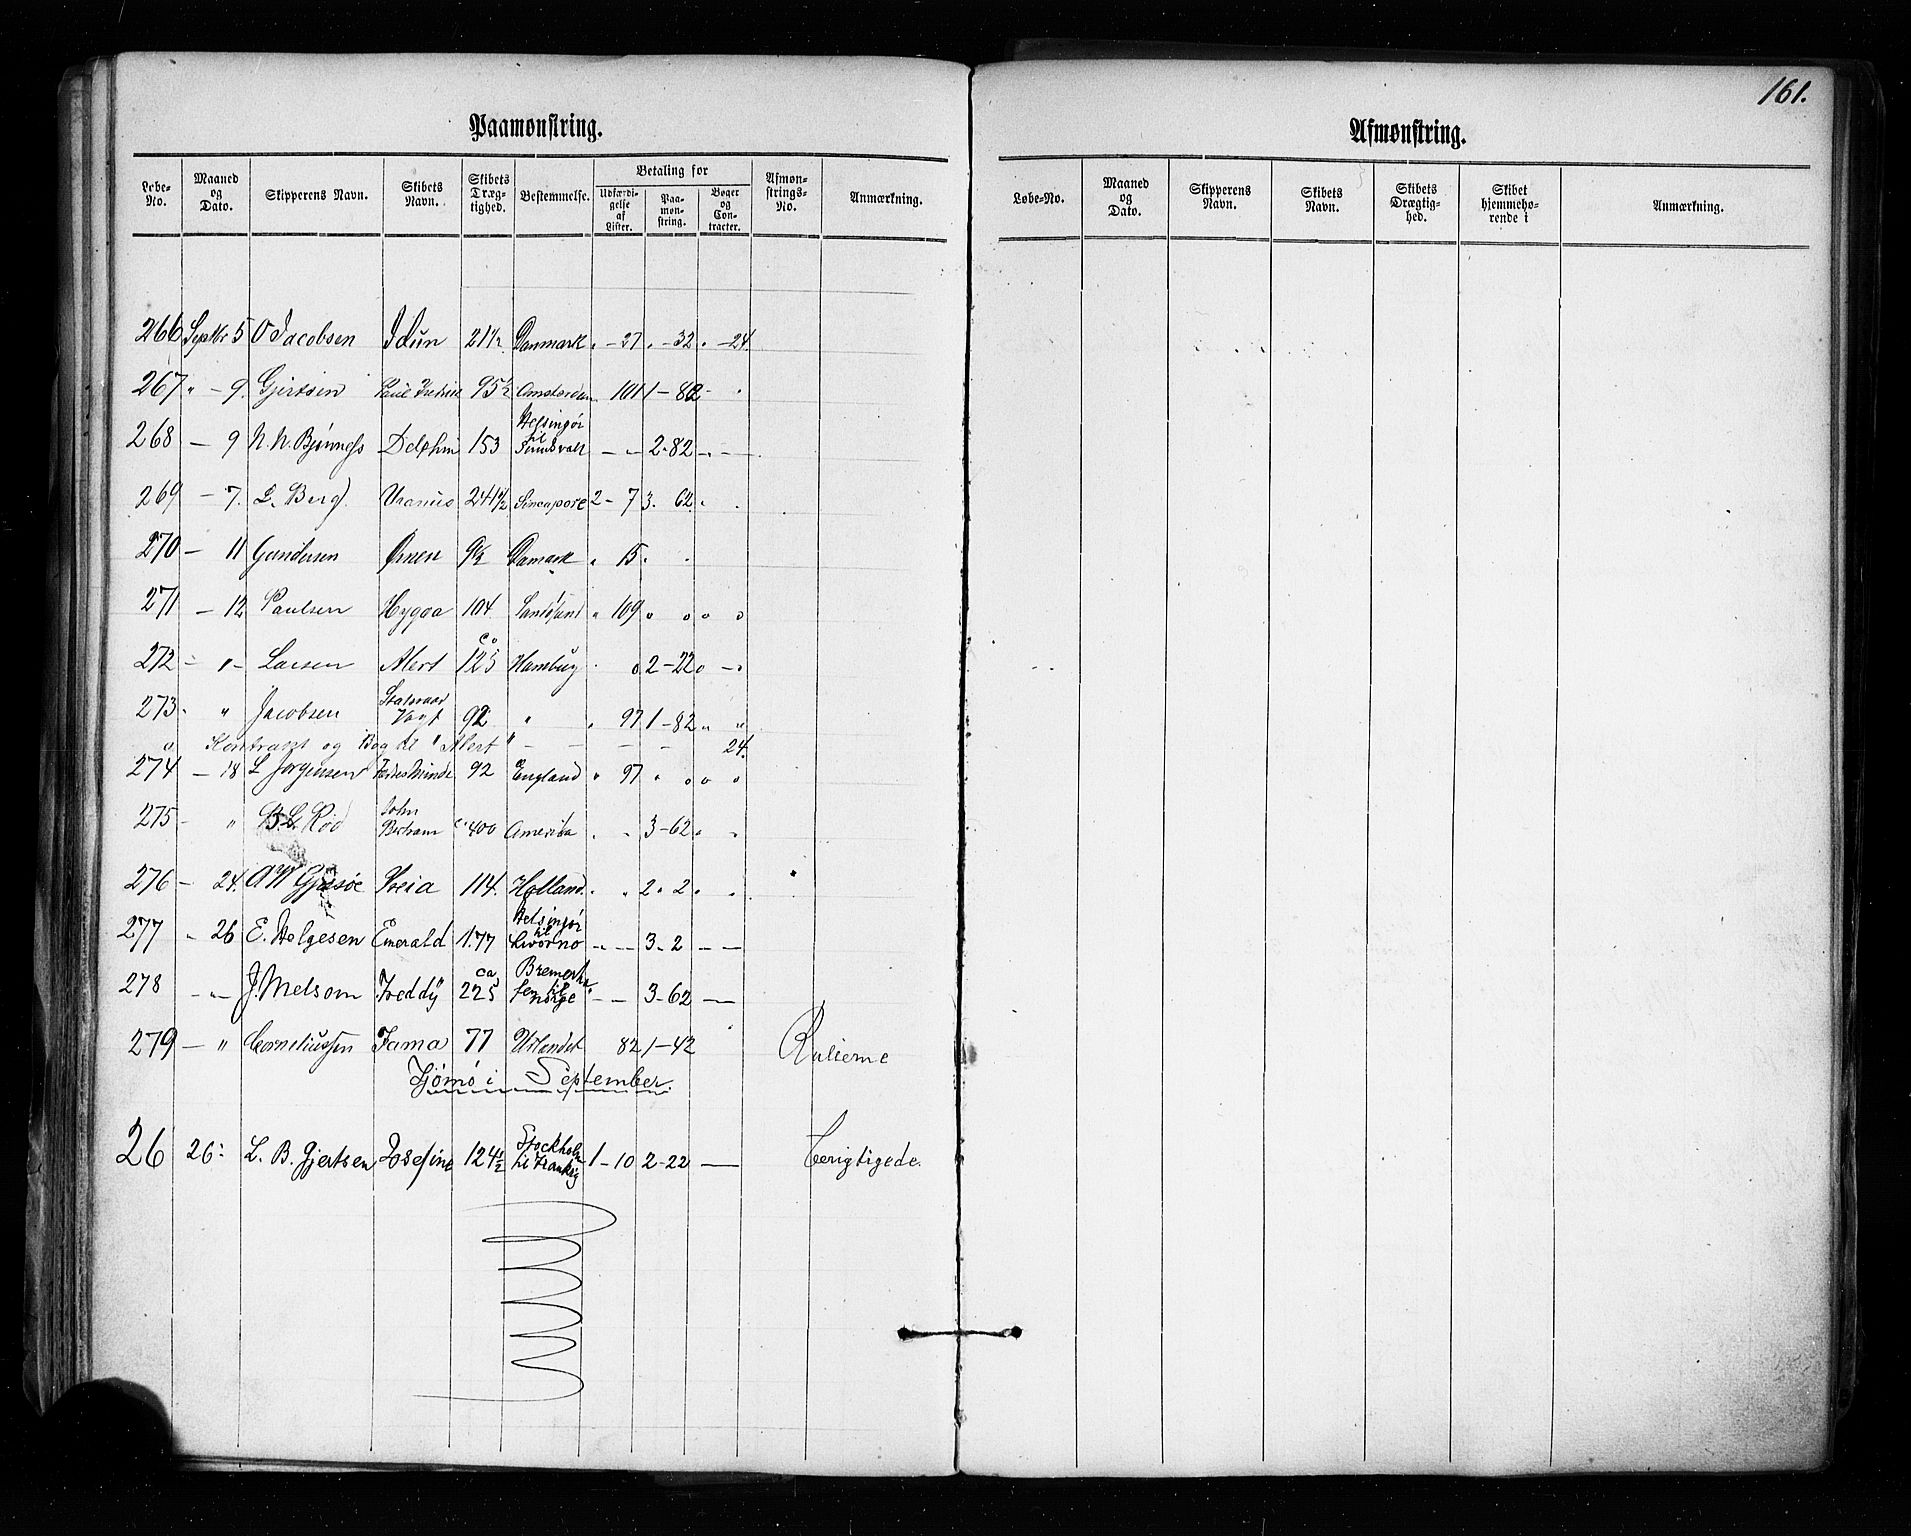 161.
Paamonstring.
Løbe-No. Maaned og Dato. Skipperens Navn. Skibets Navn. Skibets Dræg-tighed. Bestemmelse. Betaling for Udfærdi-gelse af Lister. Paa-mon-string. Bøger og Con-tracter. Afmon-strings-No. Anmærkning.
266 Septbr 5 O Jacobsen Idun 21 1/2 Danmark " - 27 " - 32 " - 24.
267 " - 9. Gjertsen Paul Fredrik 95 1/2 Amsterdam 101 1 - 82 - "
268 - 9 N. N. Bjønness Delphin 153 Helsingør til Sundsvall - - 2 - 82 - -
269 - 7. L. Berg Uranus 241 1/2 Sincapore 2 - 7 3. 62. " "
270 - 11 Gundersen Ørnen 9 1/2 Damark " 15 " "
271 - 12 Paulsen Hygea 104 Sandøsund " 109 " " " "
272 - " - Larsen Alert Ca 125 Hamburg " " 2 - 22 " - "
273. " Jacobsen Statsraad Vogt 92 " " 97 1 - 82 " "
a Kontract og Bog til "Alert" - - - - 24.
274 - 18 L Jørgensen 92 England " 97 " " " "
275 - " B. L. Rød John Bertram ca 400 Amerika " " 3 - 62 " "
276 - 24. A W Gjersøe Freia 114. Holland " " 2 " 2 " "
277 " 26 E. Helgesen Emerald 177 Helsingør til Livorno - - 3 - 2 - -
278 - " - J. Melsom Freddy ca 225 Bremerhafen til Norge " - - 3 - 62 - -
279 - " Corneliussen Fama 77 Udlandet 82 1 - 42
Tjømø i September.
26 26: L. B. Gjertsen Josefine 124 1/2 Stockholm til 1 - 10 2 - 22 - berigtigede.
Afmonstring.
Løbe-No. Maaned og Dato. Skipperens Navn. Skibets Navn. Skibets Drægtig-hed. Skibet hjemmehø-rende i Anmærkning.